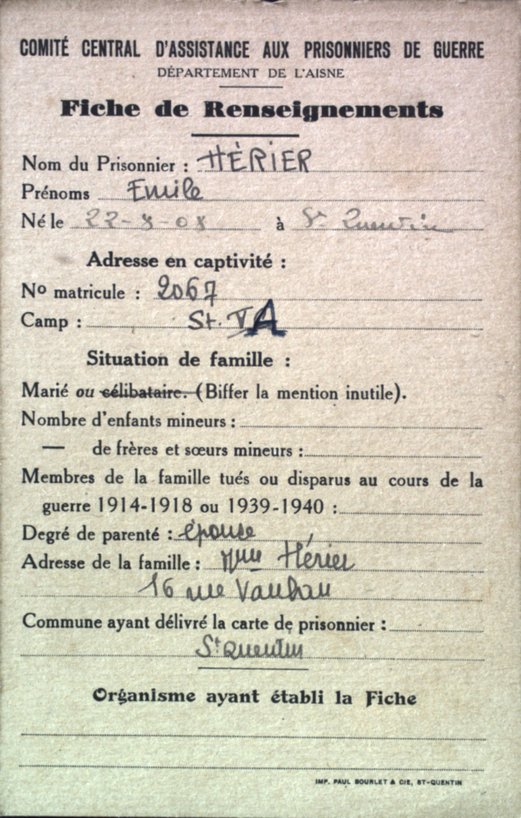 COMITÉ CENTRAL D'ASSISTANCE AUX PRISONNIERS DE GUERRE
DÉPARTEMENT DE L'AISNE
Fiche de Renseignements
Nom du Prisonnier : HÉRIER
Prénoms Emile
Né le 22-8-08 à St Quentin
Adresse en captivité :
No matricule : 2067
Camp : St. VA
Situation de famille :
Marié ou célibataire. (Biffer la mention inutile).
Nombre d'enfants mineurs :
— de frères et sœurs mineurs :
Membres de la famille tués ou disparus au cours de la
guerre 1914-1918 ou 1939-1940 :
Degré de parenté : épouse
Adresse de la famille : Mme Hérier
16 rue Vauban
Commune ayant délivré la carte de prisonnier :
St Quentin
Organisme ayant établi la Fiche
IMP. PAUL BOURLET & CIE, ST-QUENTIN